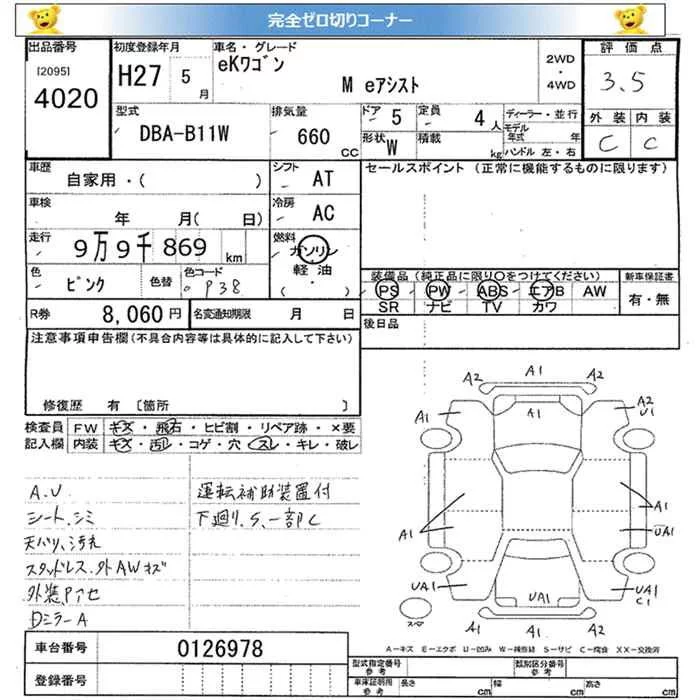 完全ゼロ切りコーナー
出品番号
[2095]
4020
初度登録年月
H27 5月
車名・グレード
eKワゴン
M eアシスト
2WD
・
4WD
評価点
3.5
外装 内装
C C
型式
DBA-B11W
排気量
660 CC
ドア 5
定員 4人
形状 W
積載 kg
ディーラー・並行
モデル年式 年
ハンドル 左・右
車歴
自家用・( )
シフト
AT
セールスポイント (正常に機能するものに限ります)
車検
年 月( 日)
冷房
AC
走行
9万9千869 km
燃料
ガソリン
軽油
( ・ )
色
ピンク
色替
色コード
P38
装備品 (純正品に限り○をつけてください)
PS PW ABS エアB AW
SR ナビ TV カワ
新車保証書
有・無
R券 8,060 円
名変通知期限 月 日
後日品
注意事項申告欄(不具合内容等は具体的に記入して下さい)
修復歴 有 〔箇所 〕
検査員
記入欄
FW キズ・飛石・ヒビ割・リペア跡・×要
内装 キズ・汚レ・コゲ・穴・スレ・キレ・破レ
A.U
シート.シミ
天バリ,汚れ
スタッドレス.外AWキズ
外装.Pアセ
Dミラー A
運転補助装置付
下廻り.S.一部C
A2 A1 A2
A1 A1 A2
U1
A1 A1
UA1
UA1 UA1 UA1
C1
A1 A1 A2
A-キズ E-エクボ U-凹み W-補修跡 S-サビ C-腐食 XX-交換済
車台番号 0126978
登録番号
型式指定番号
参考
類別区分番号
参考
車庫証明用
参考
長さ cm
幅 cm
高さ cm